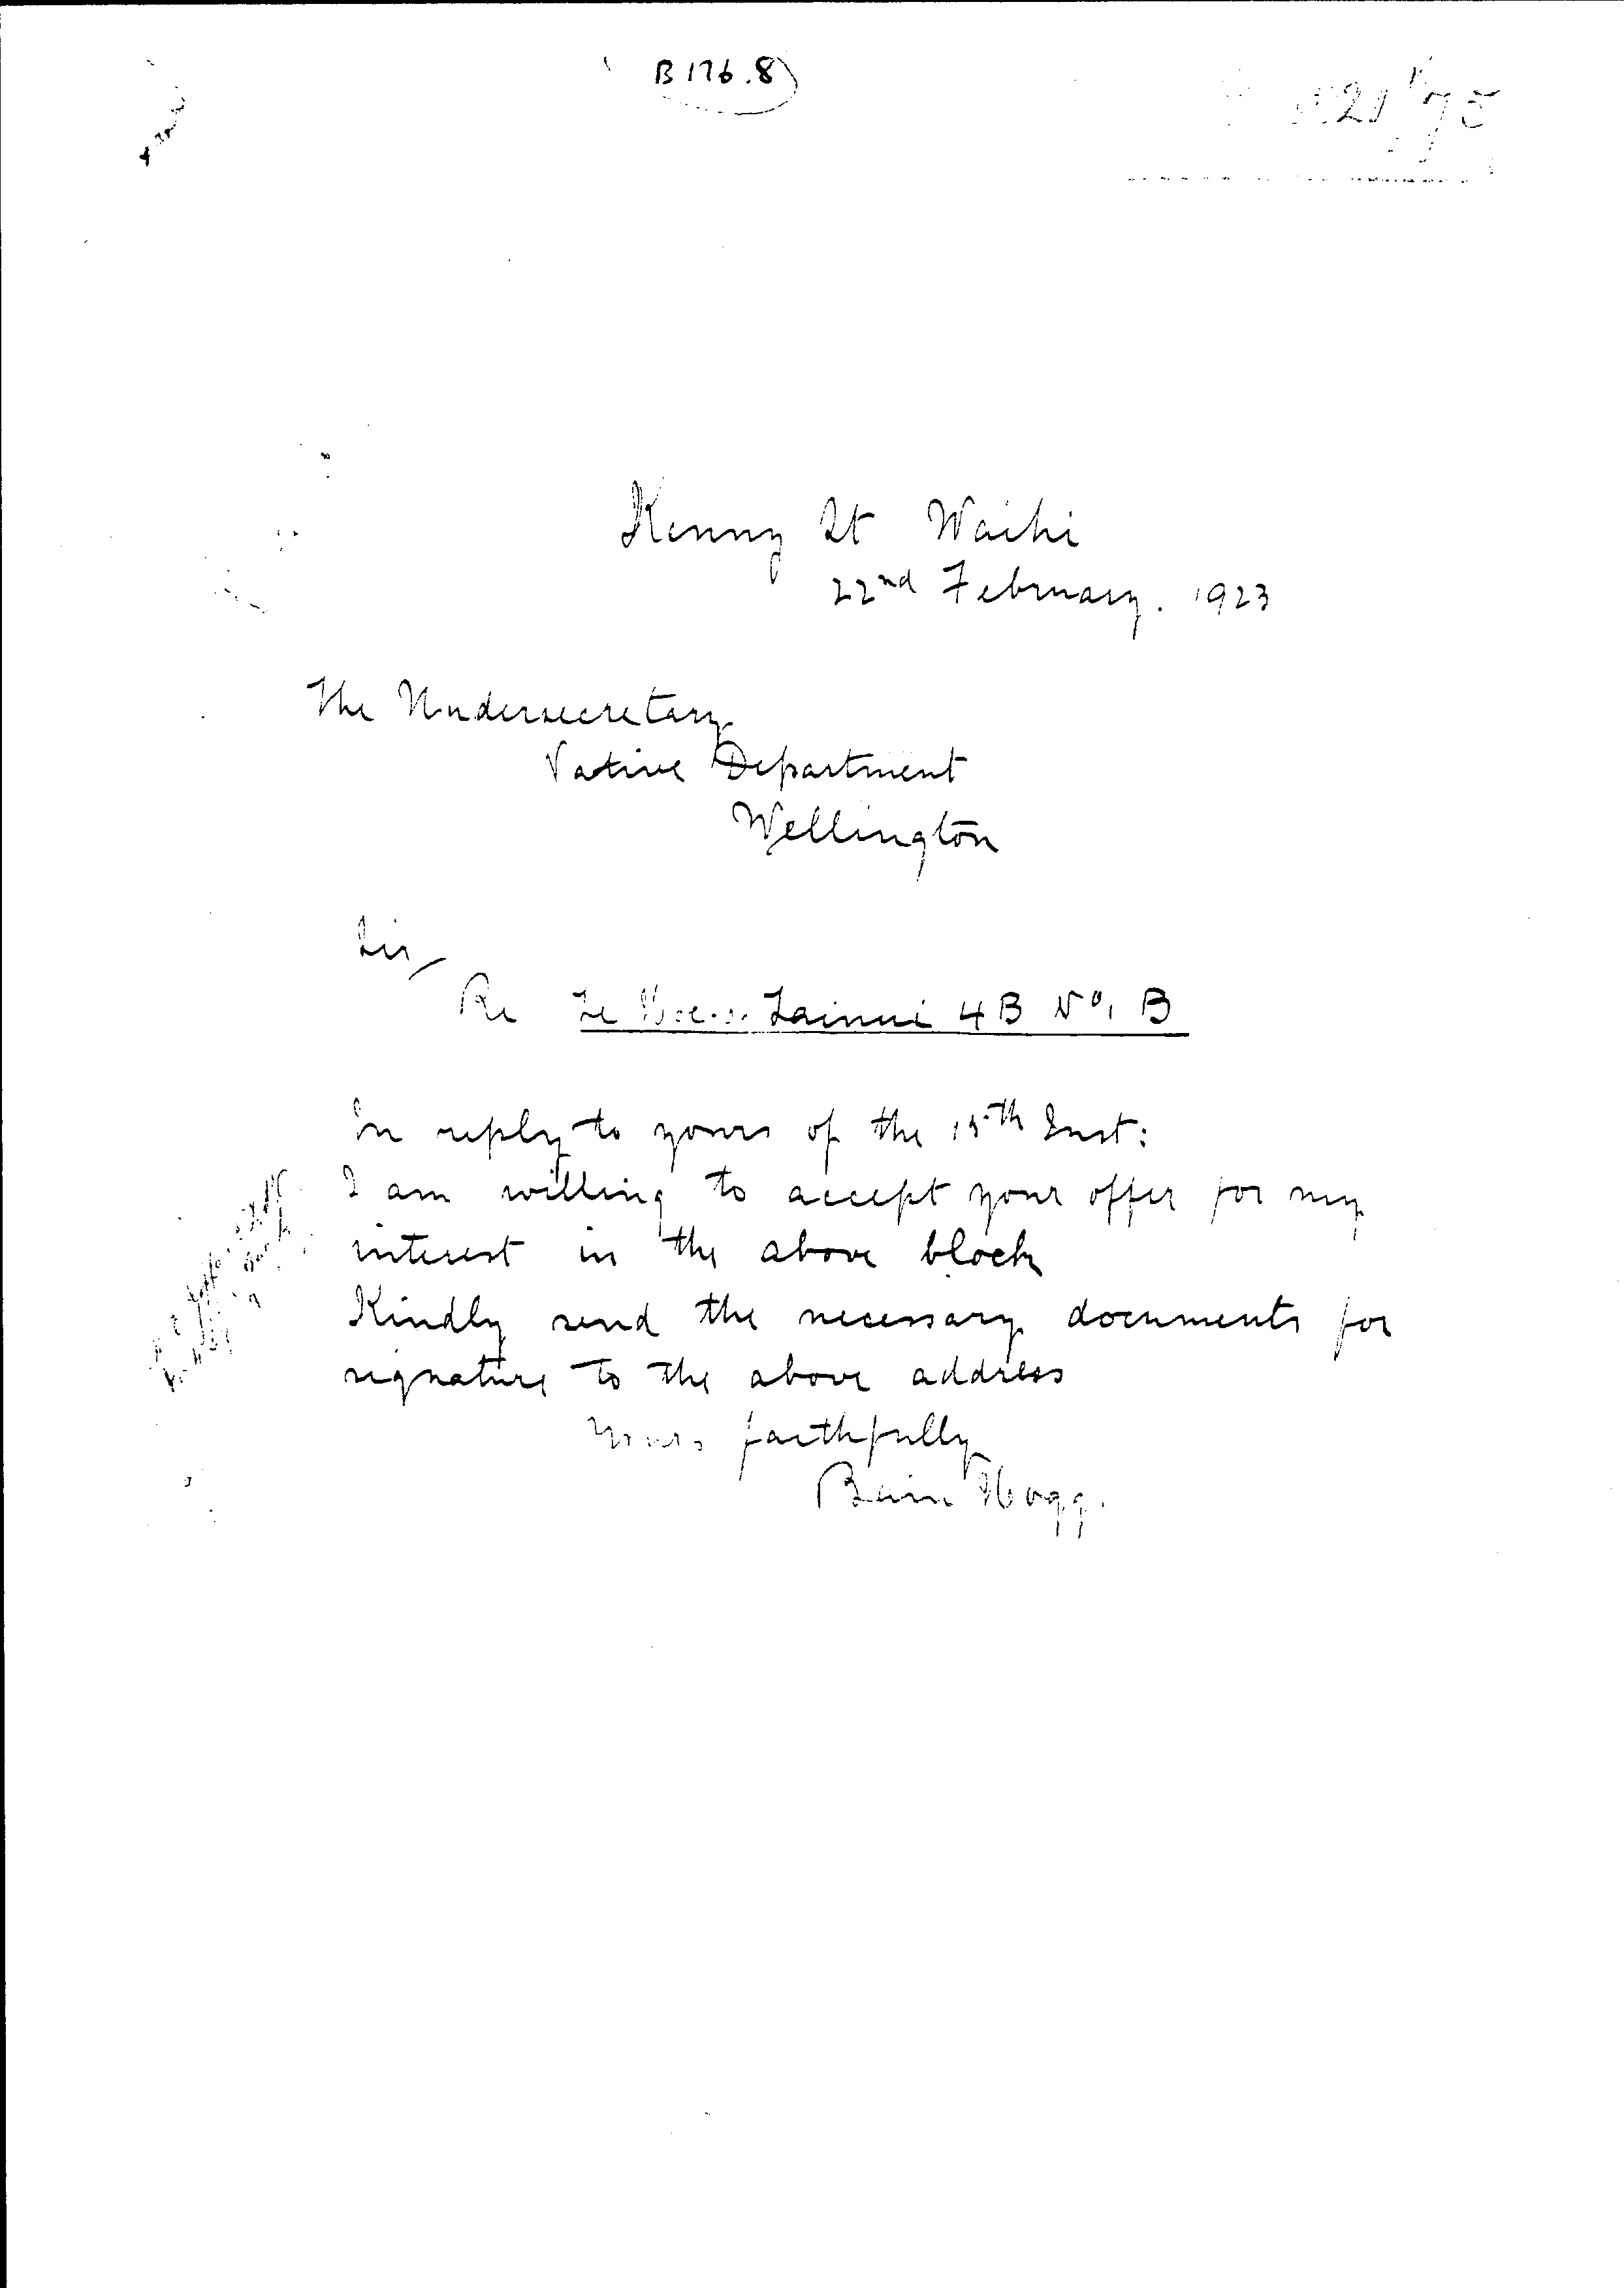 B 176.8
Kenny St Waihi
22nd February. 1923
The Undersecretary
Native Department
Wellington
Sir
Re Te Tainui 4B No. B
In reply to yours of the 15th Inst:
I am willing to accept your offer for my
interest in the above block
Kindly send the necessary documents for
signature to the above address
Yours faithfully
Bain Hogg.